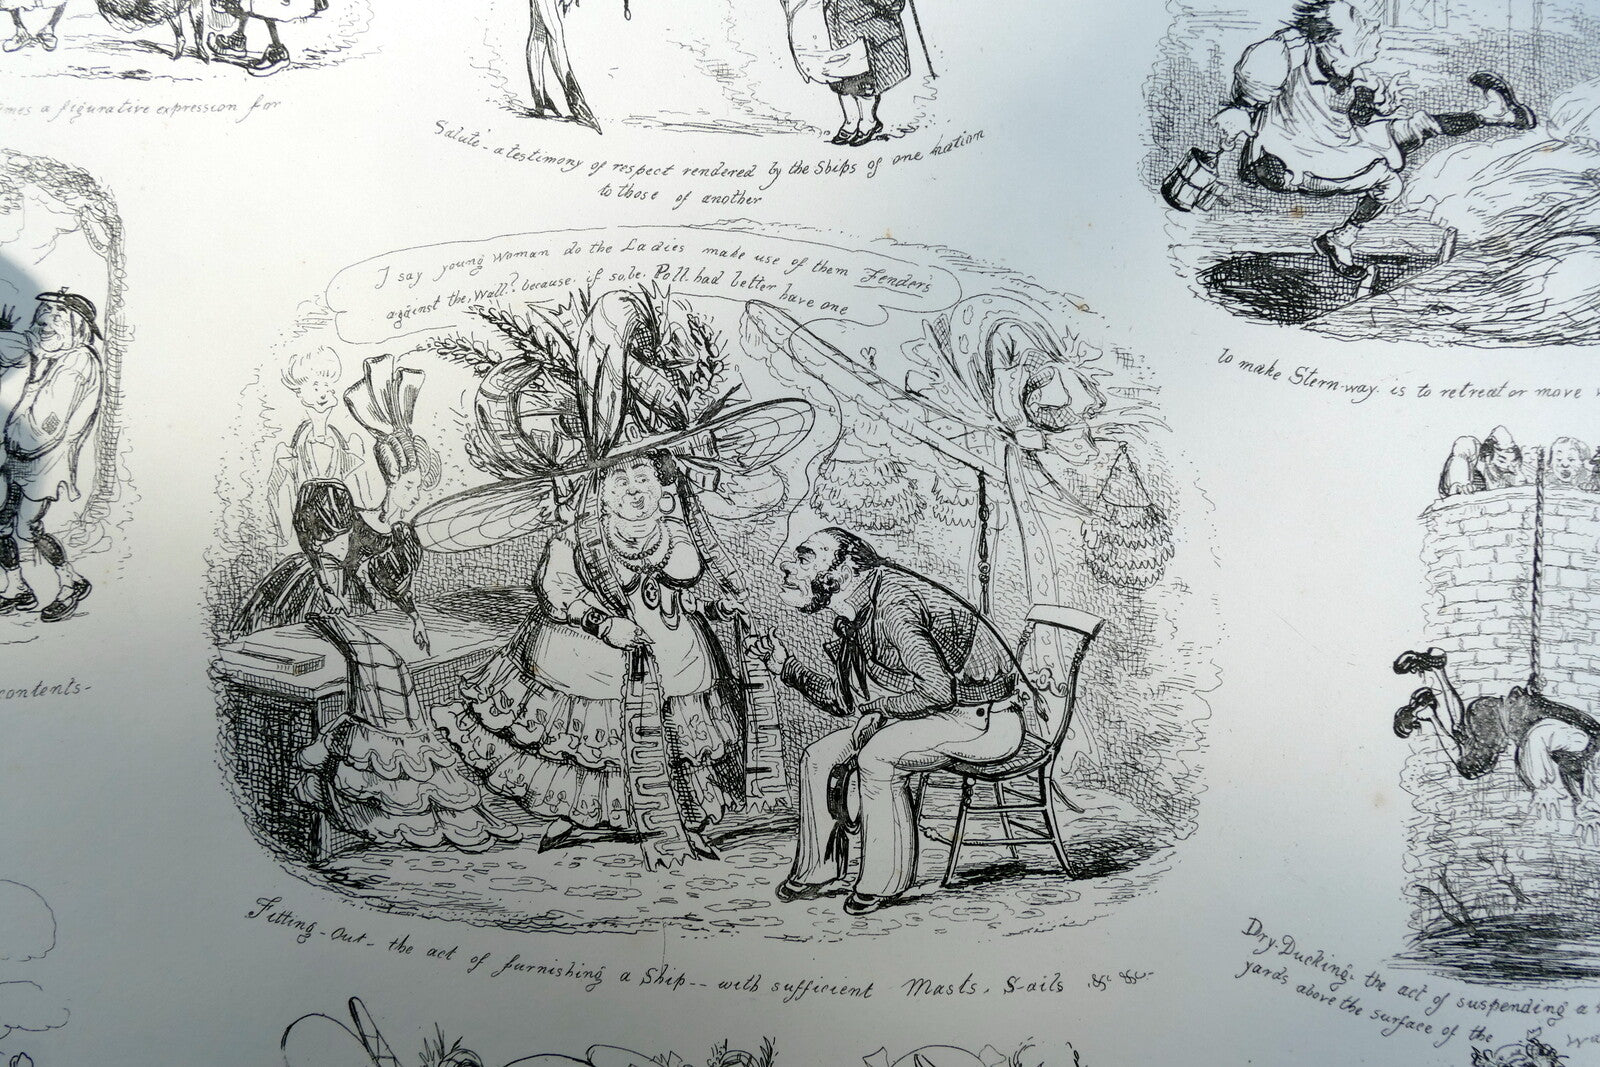 imes a figurative expression for
Salute - a testimony of respect rendered by the Ships of one nation
to those of another
I say young Woman do the Ladies make use of them Fenders
against the Wall? because if so be Poll had better have one
to make Stern-way. is to retreat or move
contents-
Fitting-Out- the act of furnishing a Ship-- with sufficient Masts, Sails &c &c-
Dry-Ducking- the act of suspending a
yards above the surface of the